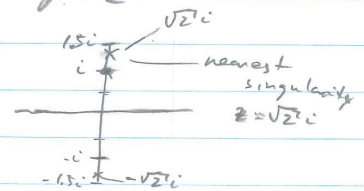 √2 i
1.5i
i
nearest
singularity
z = √2 i
-i
-1.5i
-√2 i